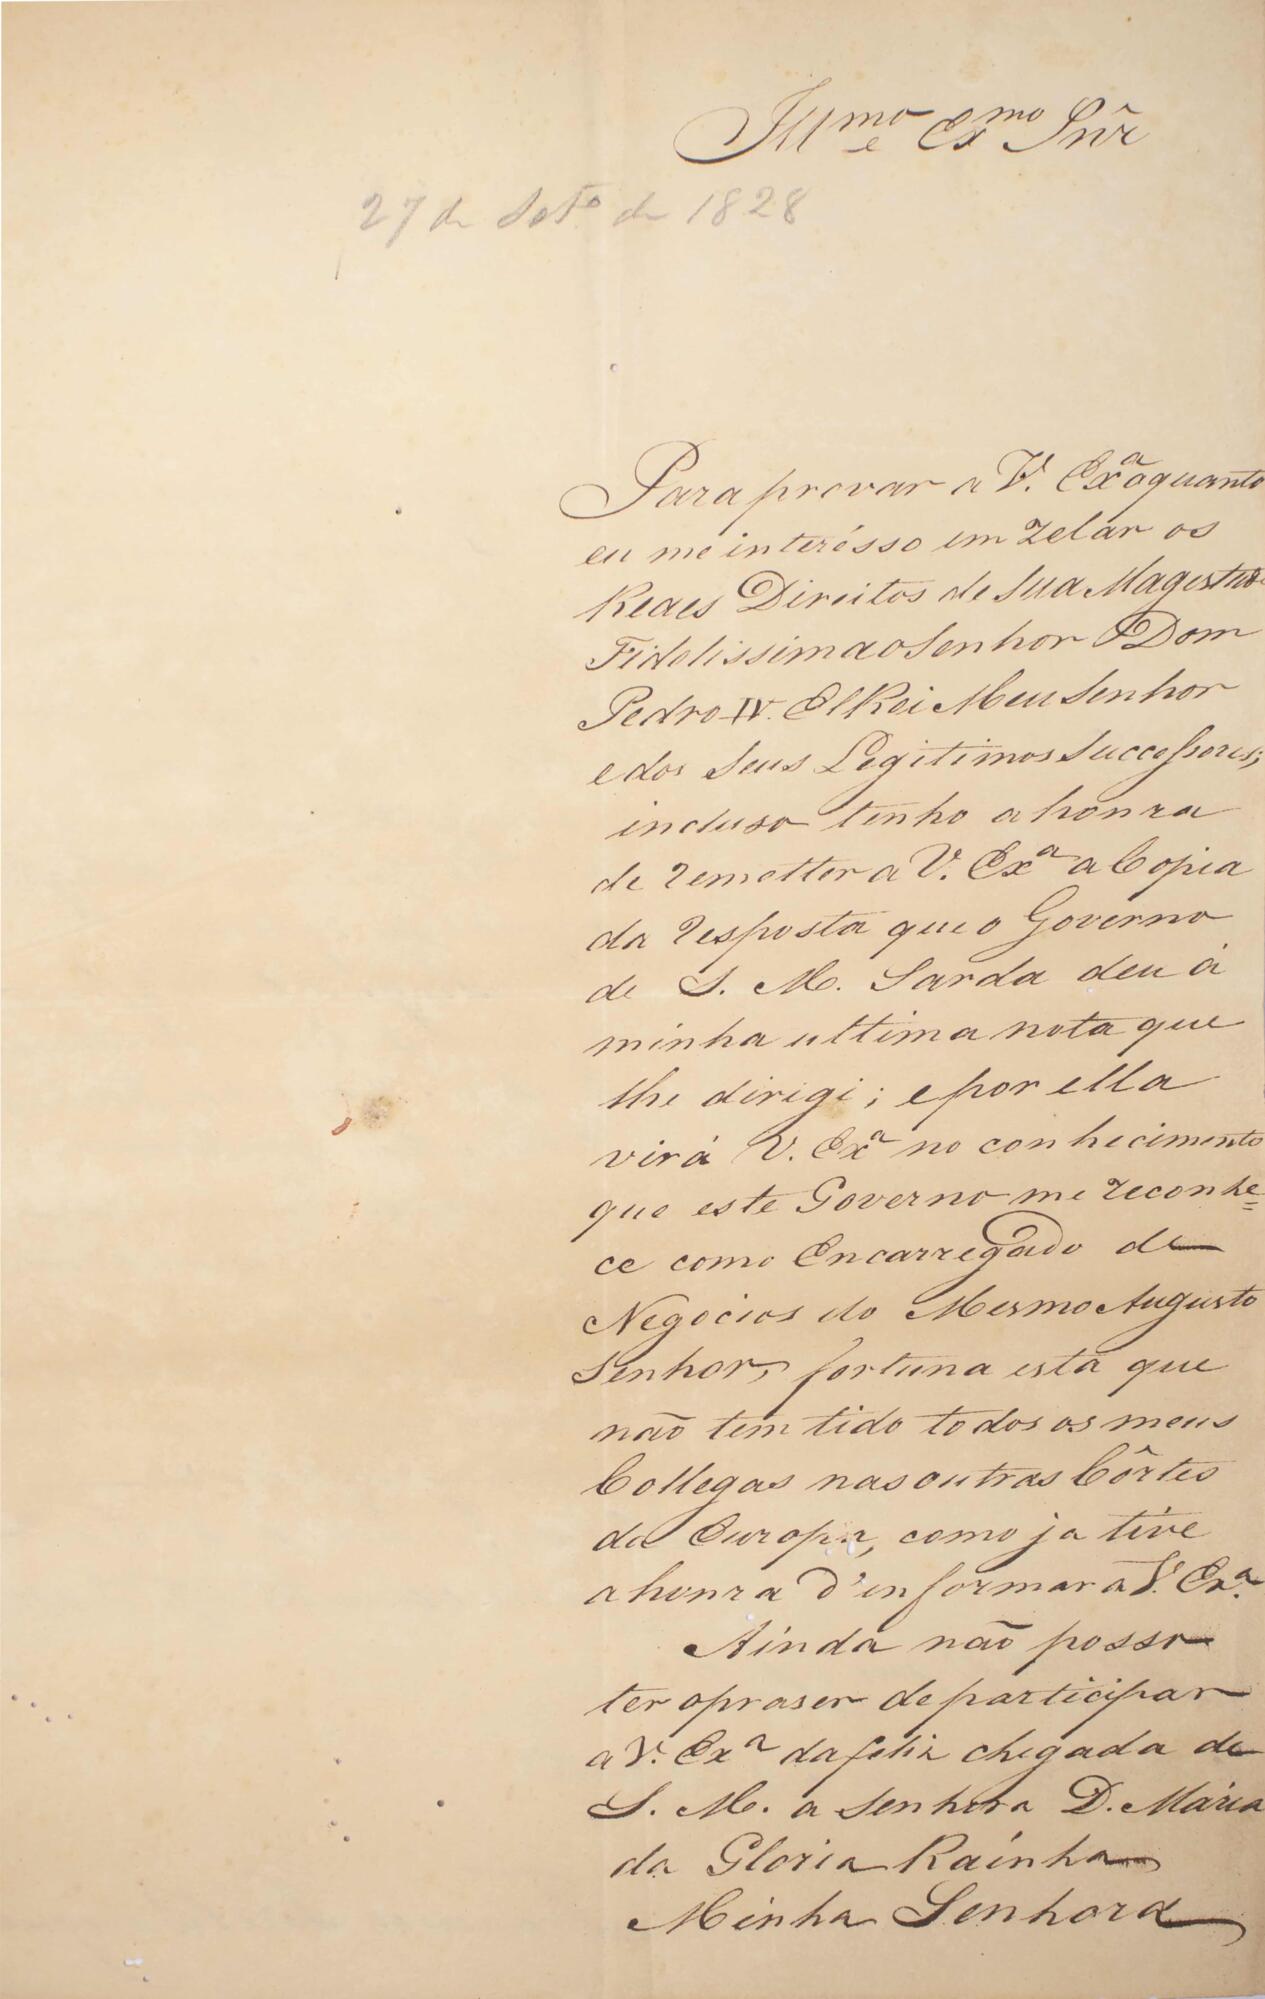 Illmo e Exmo Snr̂
27 de Setº de 1828
Para provar a V. Exª o quanto
eu me interésso em zelar os
Reaes Direitos de Sua Magestade
Fidelissima o Senhor Dom
Pedro IV. El Rei Meu Senhor
e dos Seus Legitimos Successores;
incluso tenho a honra
de remetter a V. Exª a Copia
da resposta que o Governo
de S. M. Sarda deu á
minha ultima nota que
lhe dirigi; e por ella
virá V. Exª no conhecimento
que este Governo me reconhe=
ce como Encarregado de
Negocios do Mesmo Augusto
Senhor, fortuna esta que
não tem tido todos os meus
Collegas nas outras Côrtes
da Europa, como ja tive
a honra d'informar a V. Exª.
Ainda não posso
ter o praser de participar
a V. Exª da feliz chegada de
S. M. a Senhora D. Maria
da Gloria Rainha
Minha Senhora